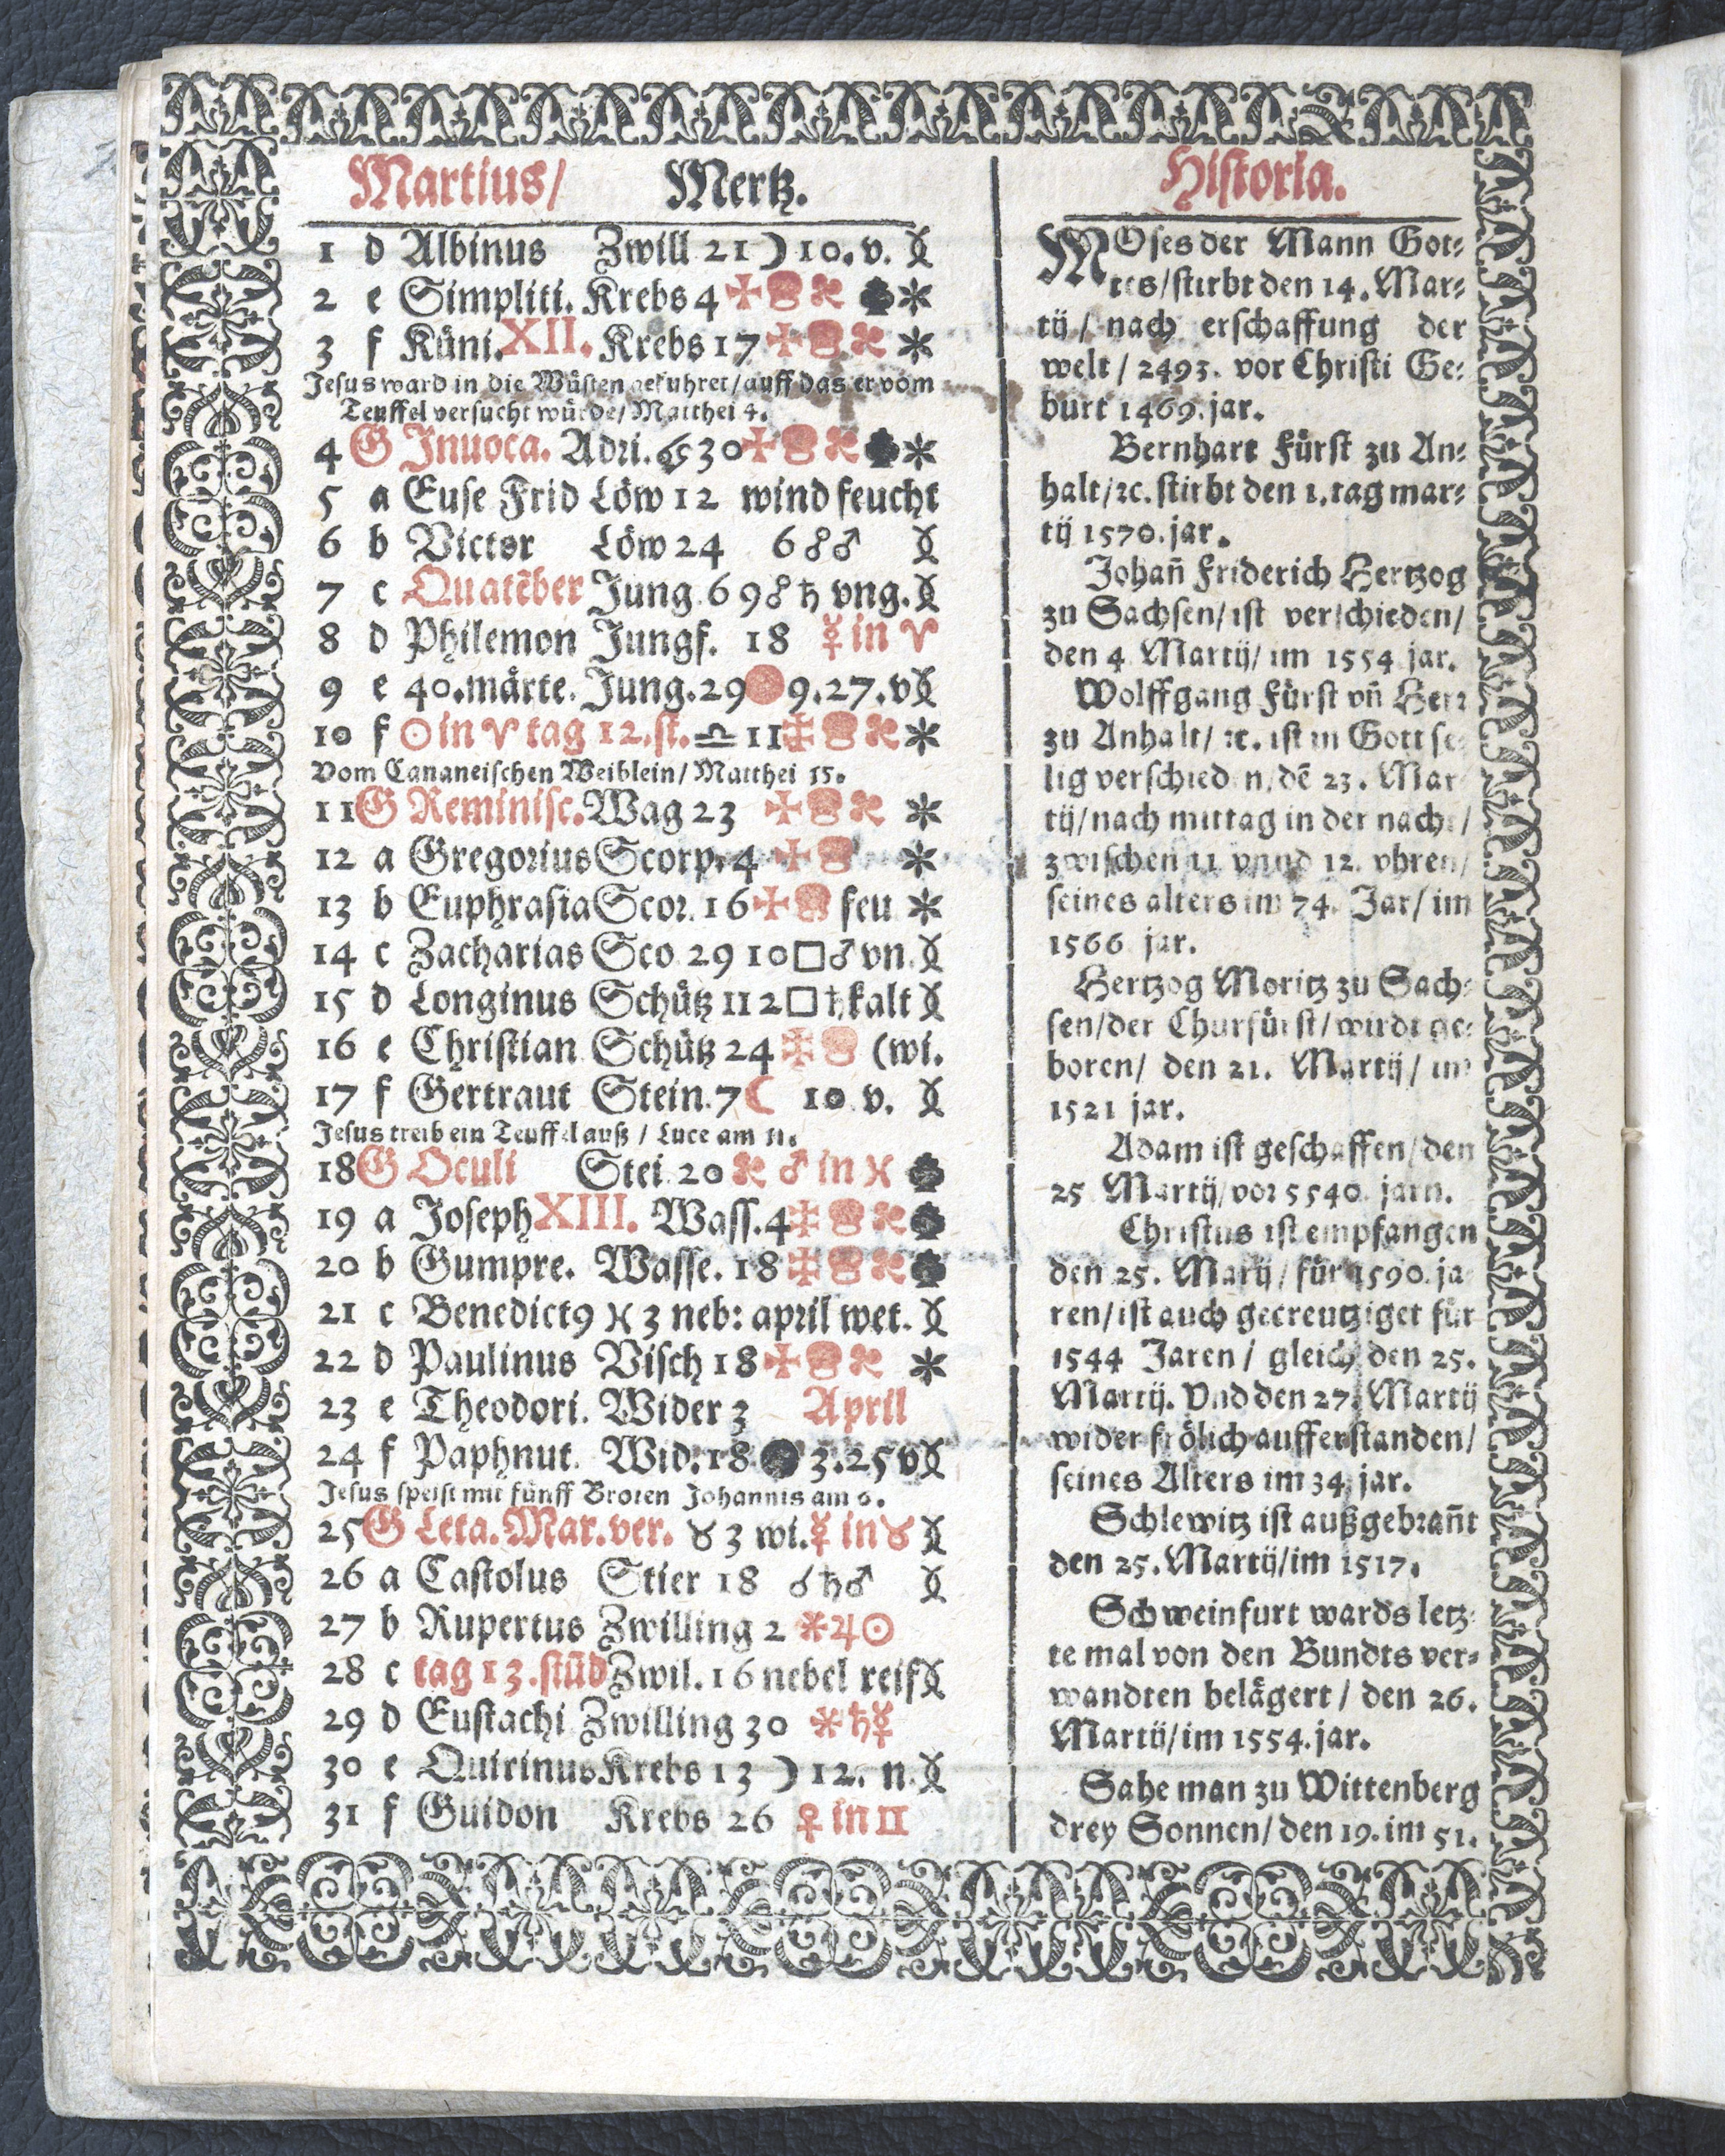 Martius/ Mertz.
1 d Albinus Zwill 21 ☽ 10. v.
2 e Simpliti. Krebs 4
3 f Küni. XII. Krebs 17
Jesus ward in die Wüsten gefuhret/ auff das er vom
Teuffel versucht würde/ Matthei 4.
4 G Inuoca. Adri. ♋ 30
5 a Euse Frid Löw 12 wind feucht
6 b Victor Löw 24 6 ☍ ♂
7 c Quatēber Jung. 6 9 ☍ ♄ vng.
8 d Philemon Jungf. 18 ☿ in ♈
9 e 40. märte. Jung. 29 9. 27. v
10 f ☉ in ♈ tag 12. st. ♎ 11
Vom Cananeischen Weiblein/ Matthei 15.
11 G Reminisc. Wag 23
12 a Gregorius Scorp. 4
13 b Euphrasia Scor. 16 feu
14 c Zacharias Sco 29 10 □ ♂ vn.
15 d Longinus Schütz 11 2 □ ♄ kalt
16 e Christian Schütz 24 (wi.
17 f Gertraut Stein. 7 ☾ 10 v.
Jesus treib ein Teuffel auß / Luce am 11.
18 G Oculi Stei 20 ♂ in ♓
19 a Joseph XIII. Wass. 4
20 b Gumpre. Wasse. 18
21 c Benedict9 ♓ 3 neb: april wet.
22 d Paulinus Visch 18
23 e Theodori. Wider 3 April
24 f Paphnut. Wid. 18 3. 25 v
Jesus speist mit fünff Broten Johannis am 6.
25 G Leta. Mar. ver. ♉ 3 wi. ☿ in ♉
26 a Castolus Stier 18 ☌ ♄ ♂
27 b Rupertus Zwilling 2 ⚹ ♃ ☉
28 c tag 13. stūd Zwil. 16 nebel reif
29 d Eustachi Zwilling 30 ⚹ ♄ ☿
30 e Quirinus Krebs 13 ☽ 12. n.
31 f Guidon Krebs 26 ♀ in ♊
Historia.
MOses der Mann Got⸗
tes/ stirbt den 14. Mar⸗
tij / nach erschaffung der
welt / 2493. vor Christi Ge⸗
burt 1469. jar.
Bernhart Fürst zu An⸗
halt/ ꝛc. stirbt den 1. tag mar⸗
tij 1570. jar.
Johañ Friderich Hertzog
zu Sachsen/ ist verschieden/
den 4 Martij/ im 1554 jar.
Wolffgang Fürst vñ Herr
zu Anhalt/ ꝛc. ist in Gott se⸗
lig verschieden/ dē 23. Mar
tij/ nach mittag in der nacht/
zwischen 11 vnnd 12. vhren/
seines alters im 74. Jar/ im
1566 jar.
Hertzog Moritz zu Sach⸗
sen/ der Churfürst/ wirdt ge⸗
boren/ den 21. Martij/ im
1521 jar.
Adam ist geschaffen/ den
25 Martij/ vor 5540. jarn.
Christus ist empfangen
den 25. Martij/ für 1590. ja⸗
ren/ ist auch gecreutziget für
1544 Jaren / gleich den 25.
Martij. Vnd den 27. Martij
wider frölich aufferstanden/
seines Alters im 34. jar.
Schlewitz ist außgebrañt
den 25. Martij/ im 1517.
Schweinfurt wards letz⸗
te mal von den Bundts ver⸗
wandten belägert / den 26.
Martij/ im 1554. jar.
Sahe man zu Wittenberg
drey Sonnen/ den 19. im 51.